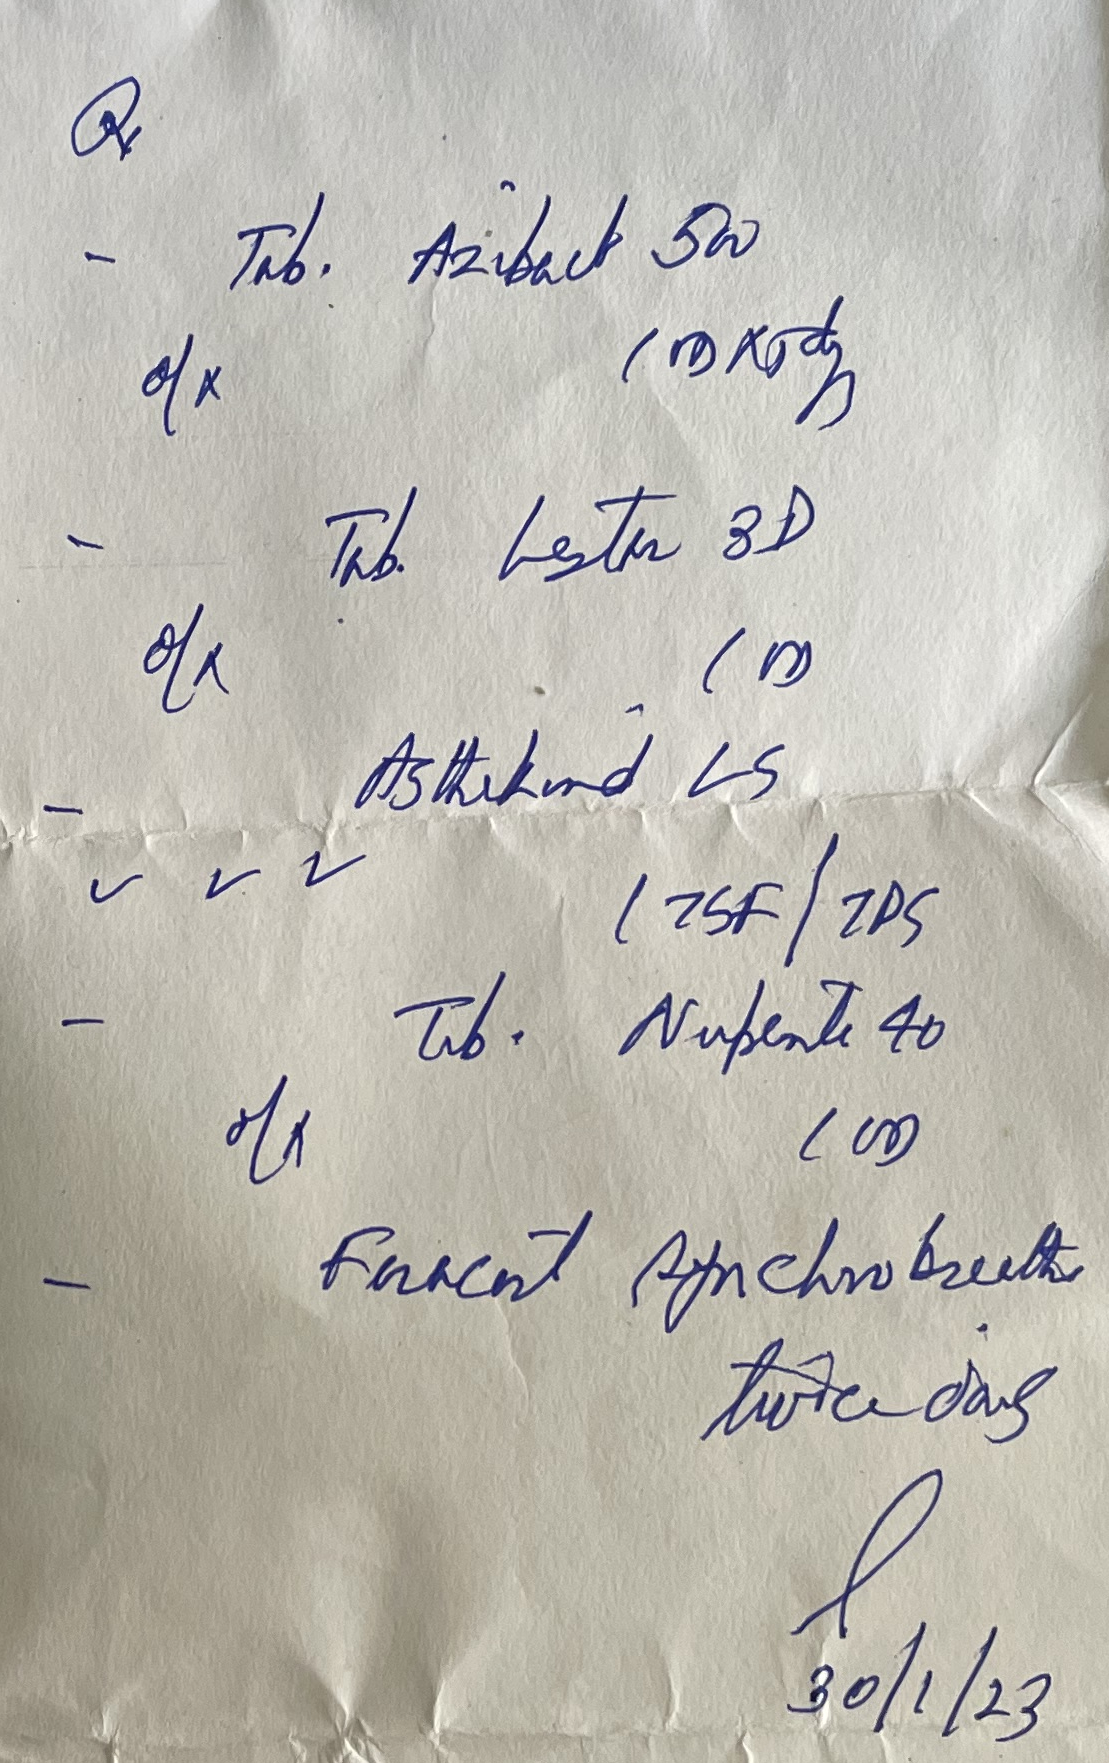 Rx
- Tab. Aziback 500
1 OD
- Tab. 3D
1 OD
- Asthakind LS
✓ ✓ ✓ 1 TSF/TDS
- Tab. Nupenta 40
1 OD
- Foracort Synchrobreathe
twice daily
30/1/23